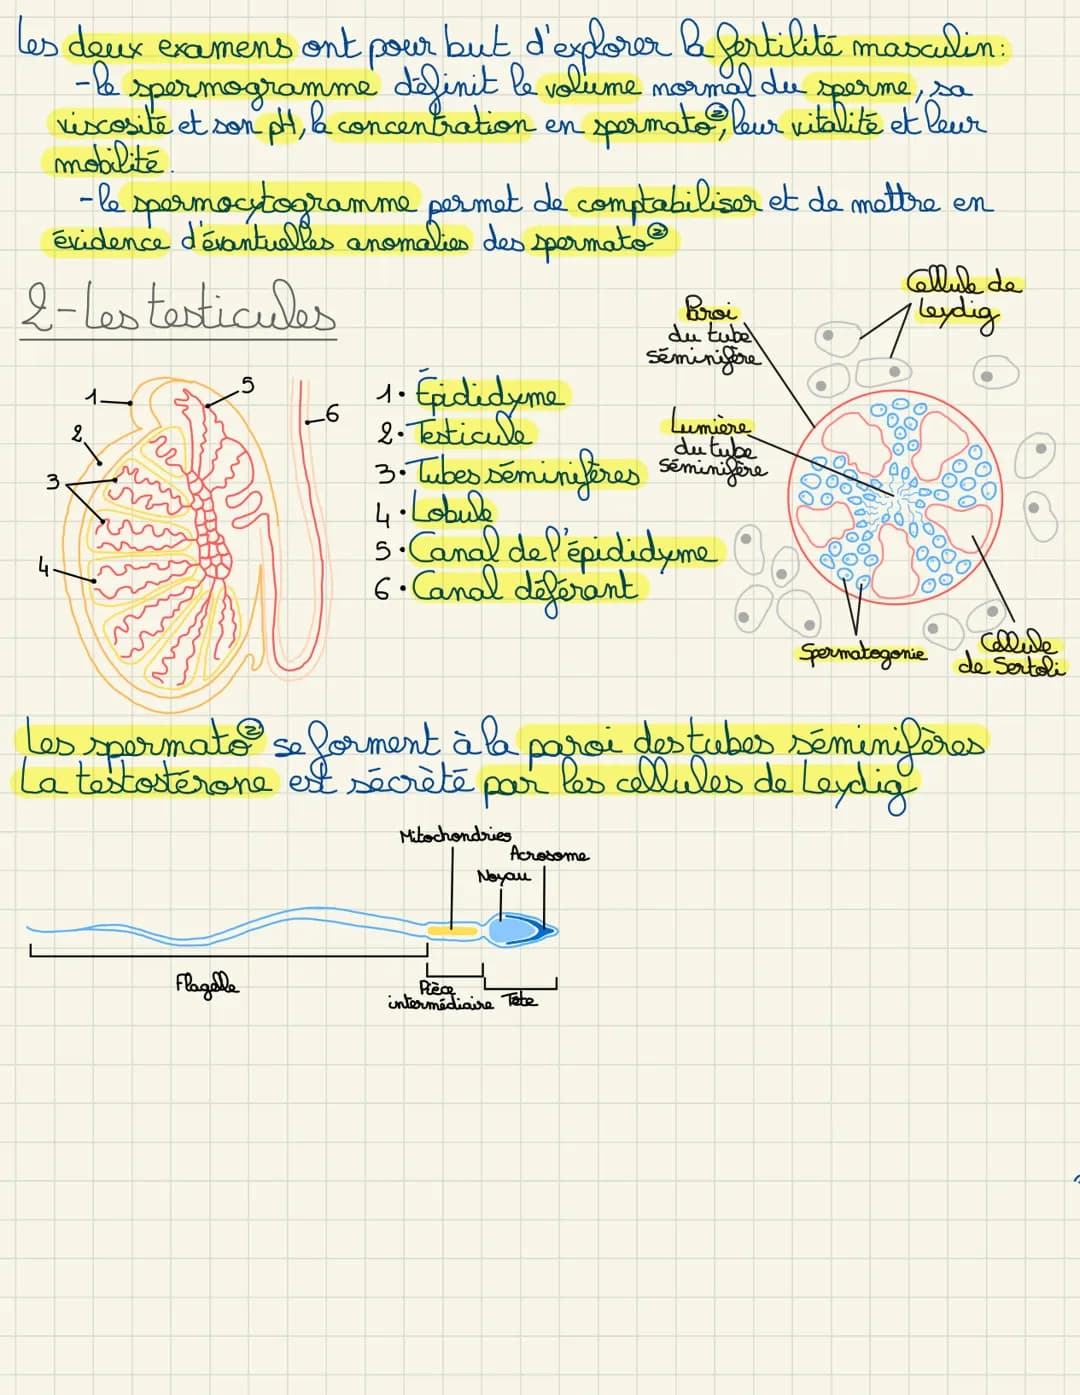 Les deux examens ont pour but d'explorer la fertilité masculin:
-le spermogramme définit le volume normal du sperme, sa
viscosité et son pH, la concentration en spermato②, leur vitalité et leur
mobilité.
-le spermocytogramme permet de comptabiliser et de mettre en
évidence d'évantuelles anomalies des spermato②
2-Les testicules
1
2
3
4
5
6
1• Épididyme
2• Testicule
3• Tubes séminifères
4• Lobule
5• Canal de l'épididyme
6• Canal déférant
Paroi
du tube
séminifère
Cellule de
Leydig
Lumière
du tube
séminifère
Spermatogonie
Cellule
de Sertoli
Les spermato② se forment à la paroi des tubes séminifères
La testostérone est sécrèté par les cellules de Leydig
Mitochondries
Acrosome
Noyau
Flagelle
Pièce
intermédiaire
Tête